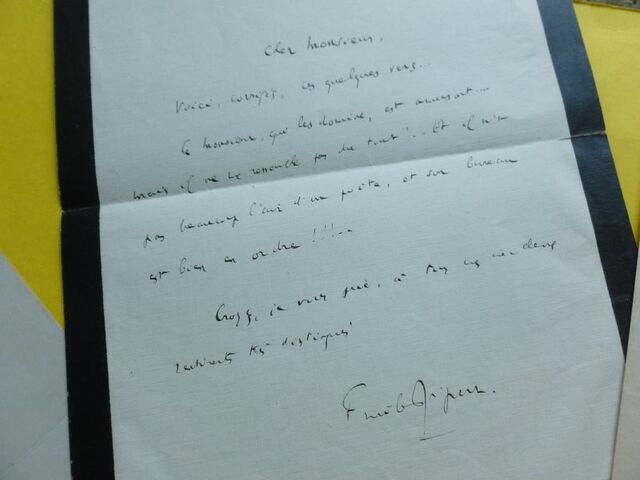 Cher Monsieur,
Voici, corrigés, ces quelques vers...
Le Monsieur, qui les domine, est amusant...
mais il ne me ressemble pas du tout!.. Et il n'a
pas beaucoup l'air d'un poète, et son bureau
est bien en ordre!!!..
Croyez, je vous prie, à tous mes meilleurs
sentiments très distingués